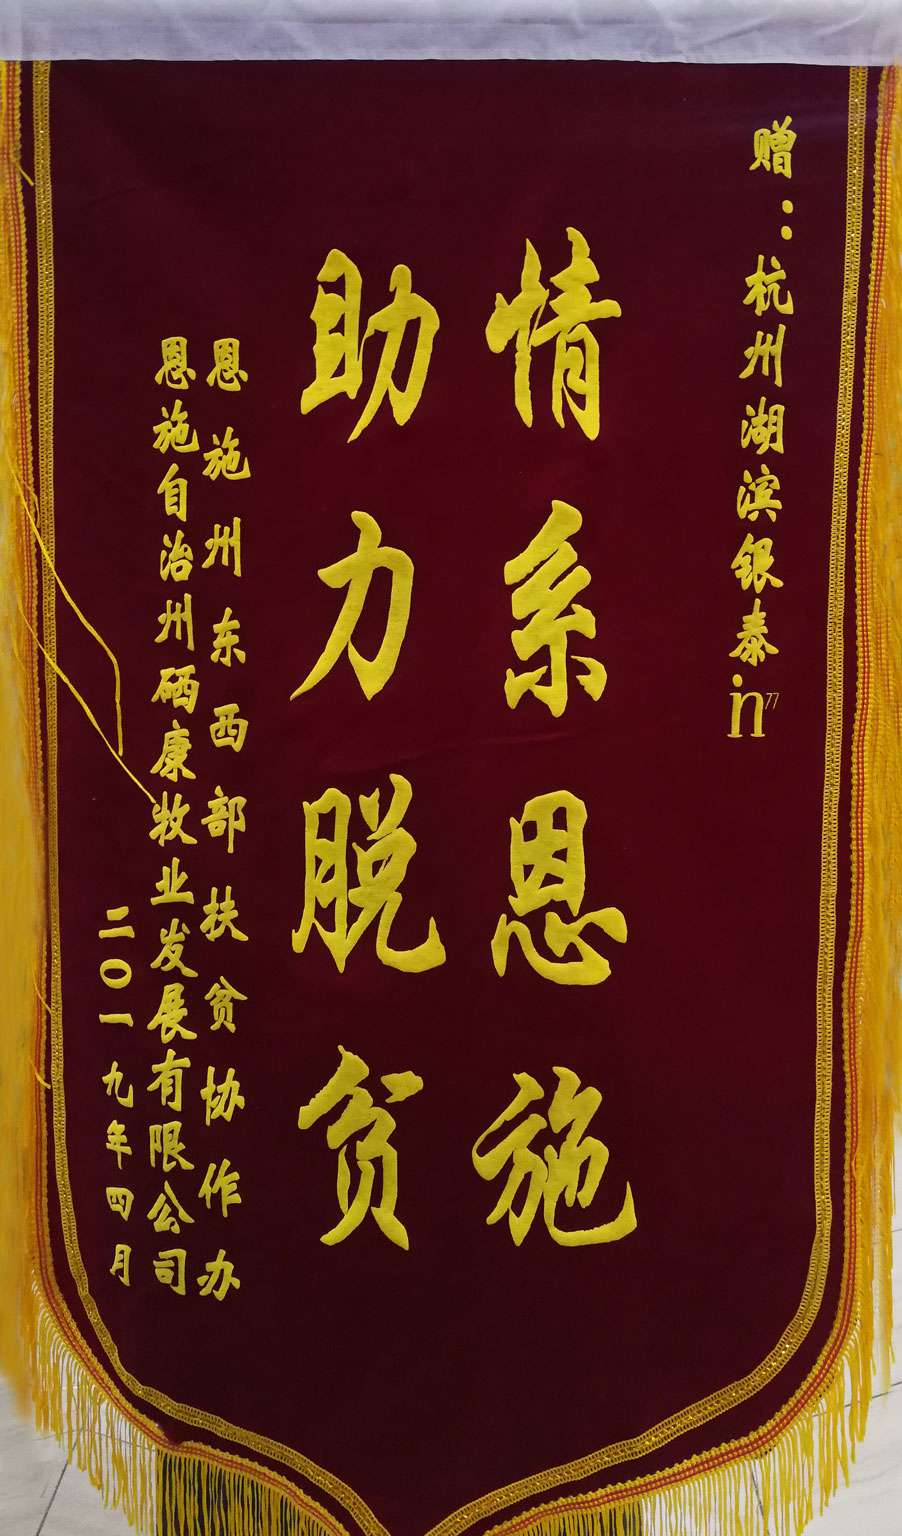 赠：杭州湖滨银泰in77
情系恩施
助力脱贫
恩施州东西部扶贫协作办
恩施自治州硒康牧业发展有限公司
二〇一九年四月